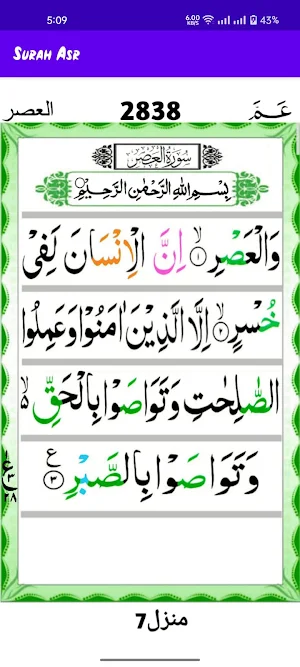 5:09 6.00 KB/S 43%
Surah Asr
العصر 2838 عَـمَّ
سُورَةُ الْعَصْرِ
بِسْمِ اللهِ الرَّحْمٰنِ الرَّحِيْمِ
وَالْعَصْرِ ۙ﴿۱﴾ اِنَّ الْاِنْسَانَ لَفِیْ
خُسْرٍ ۙ﴿۲﴾ اِلَّا الَّذِیْنَ اٰمَنُوْا وَعَمِلُوا
الصّٰلِحٰتِ وَتَوَاصَوْا بِالْحَقِّ ۙ
وَتَوَاصَوْا بِالصَّبْرِ ﴿۳﴾ ع
ع ۳ ۲۸
منزل7